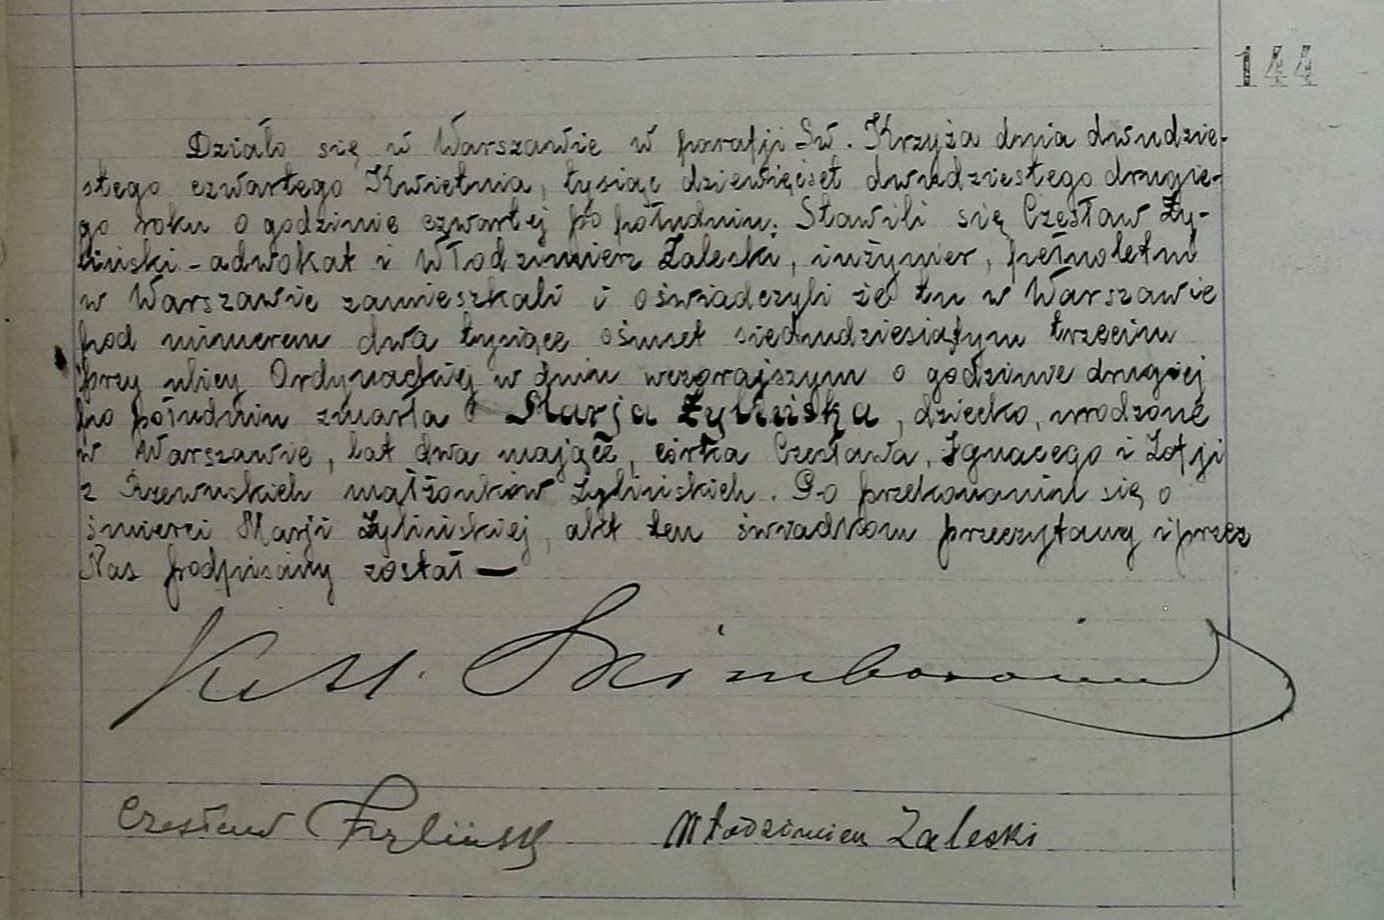 144
Działo się w Warszawie w parafji Św. Krzyża dnia dwudzie-
stego czwartego Kwietnia, tysiąc dziewięćset dwudziestego drugie-
go roku o godzinie czwartej po południu. Stawili się Czesław Ży-
liński - adwokat i Włodzimierz Zaleski, inżynier, pełnoletni
w Warszawie zamieszkali i oświadczyli że tu w Warszawie
pod numerem dwa tysiące ośmset siedmdziesiątym trzecim
przy ulicy Ordynackiej w dniu wczorajszym o godzinie drugiej
po południu zmarła Marja Żylińska, dziecko, urodzone
w Warszawie, lat dwa mające, córka Czesława, Ignacego i Zofji
z Rzewuskich małżonków Żylińskich. Po przekonaniu się o
śmierci Marji Żylińskiej, akt ten świadkom przeczytany i przez
Nas podpisany został —
Czesław Żyliński Włodzimierz Zaleski